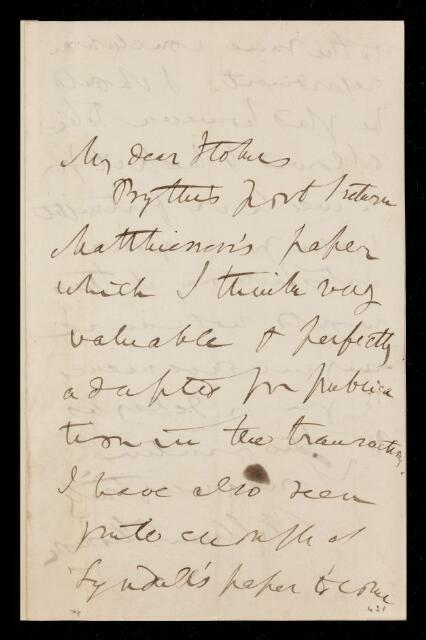 My dear Stokes
By this post I return
Matthiessen's paper
which I think very
valuable & perfectly
adapted for publica
tion in the transactions.
I have also seen
quite enough of
Tyndall's paper to come
421